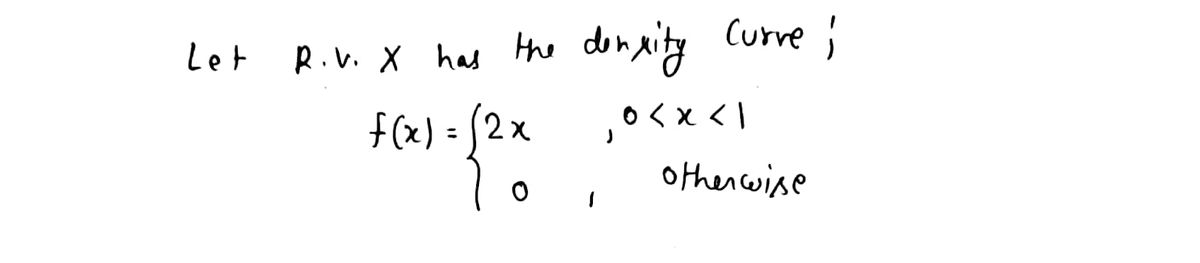 Let R.V. X has the density Curve ;
f(x) = { 2x , 0 < x < 1
0 , otherwise